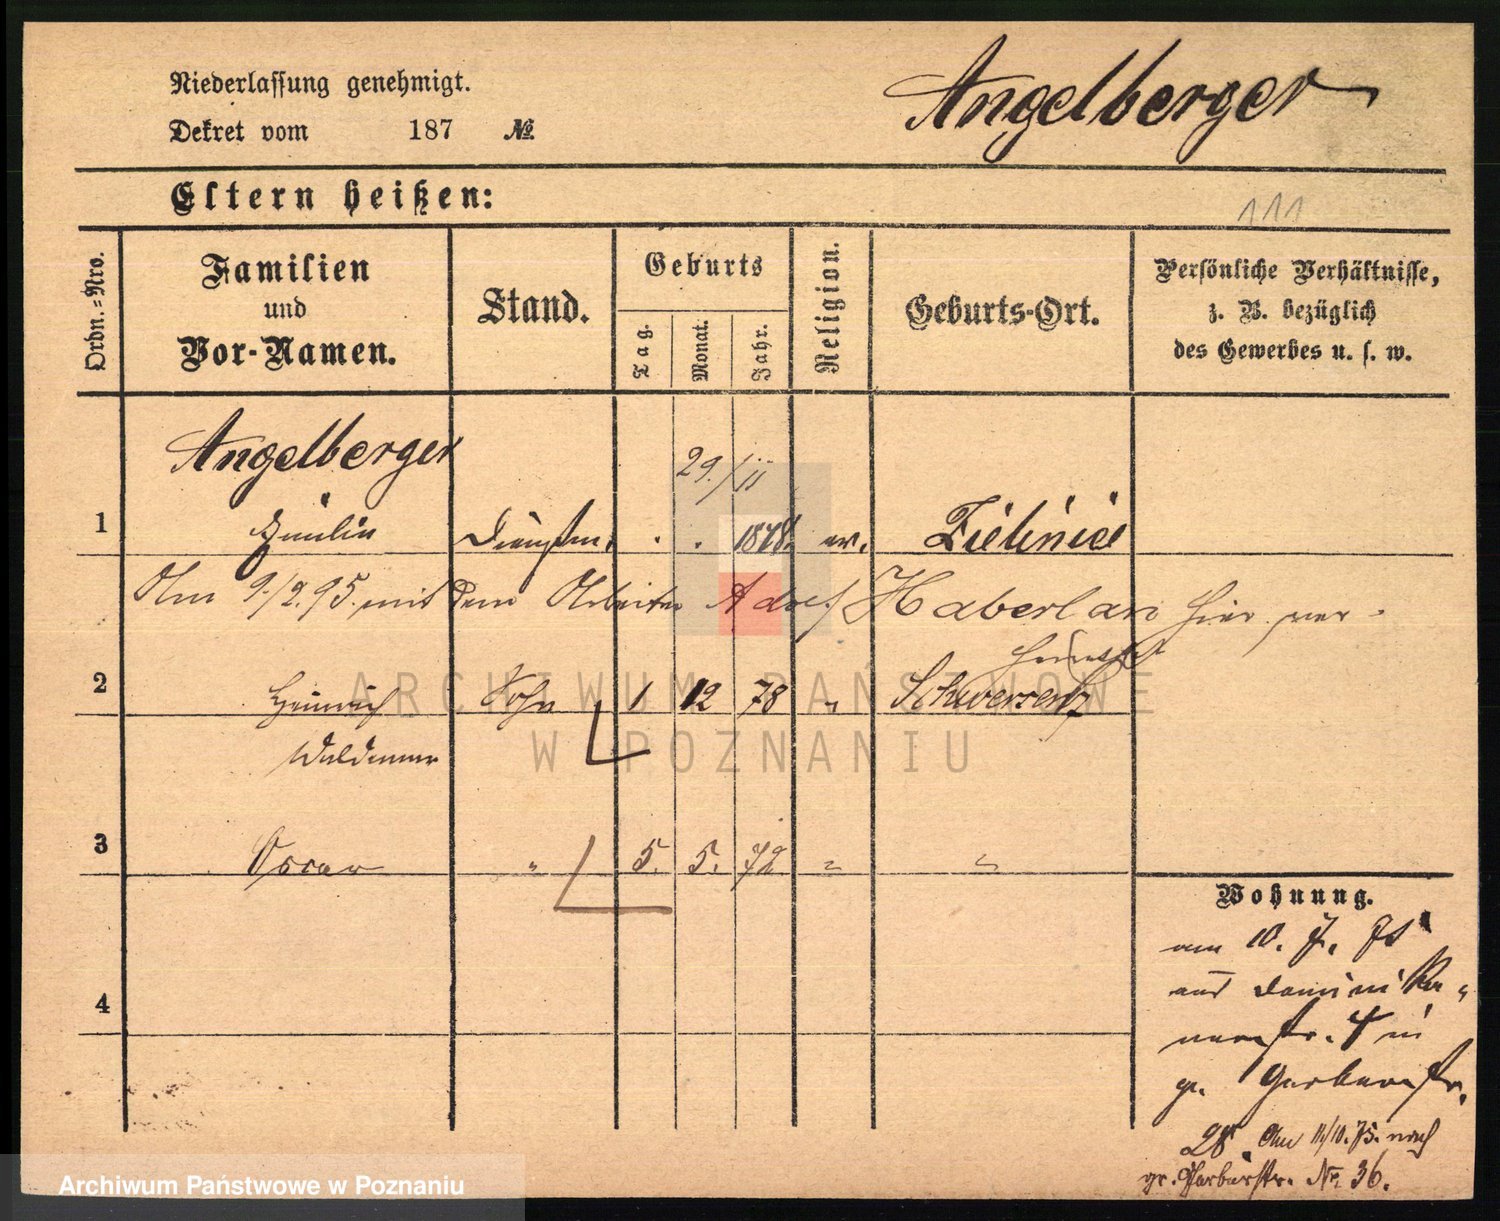 Niederlassung genehmigt.
Dekret vom 187 №
Angelberger
Eltern heißen:
111
Ordn.=Nro.
Familien
und
Vor-Namen.
Stand.
Geburts
Tag.
Monat.
Jahr.
Religion.
Geburts-Ort.
Persönliche Verhältnisse,
z. B. bezüglich
des Gewerbes u. s. w.
Angelberger
29./ii
1 Emilie Dienstm. . . 1848. ev. Zieliniec
Am 9./2.95. mit dem Arbeiter Adolf Haberlan hier ver-
heirathet
2 Heinrich Sohn 1 12 78 " Schwersenz
Waldemar
3 Oscar " 5. 5. 72 " "
4
Wohnung.
am 10. 7. 75
aus Dominika-
nerstr. 4 in
gr. Gerberstr.
28. Am 11/10.75. nach
gr. Gerberstr. № 36.
ARCHIWUM PAŃSTWOWE
W POZNANIU
Archiwum Państwowe w Poznaniu